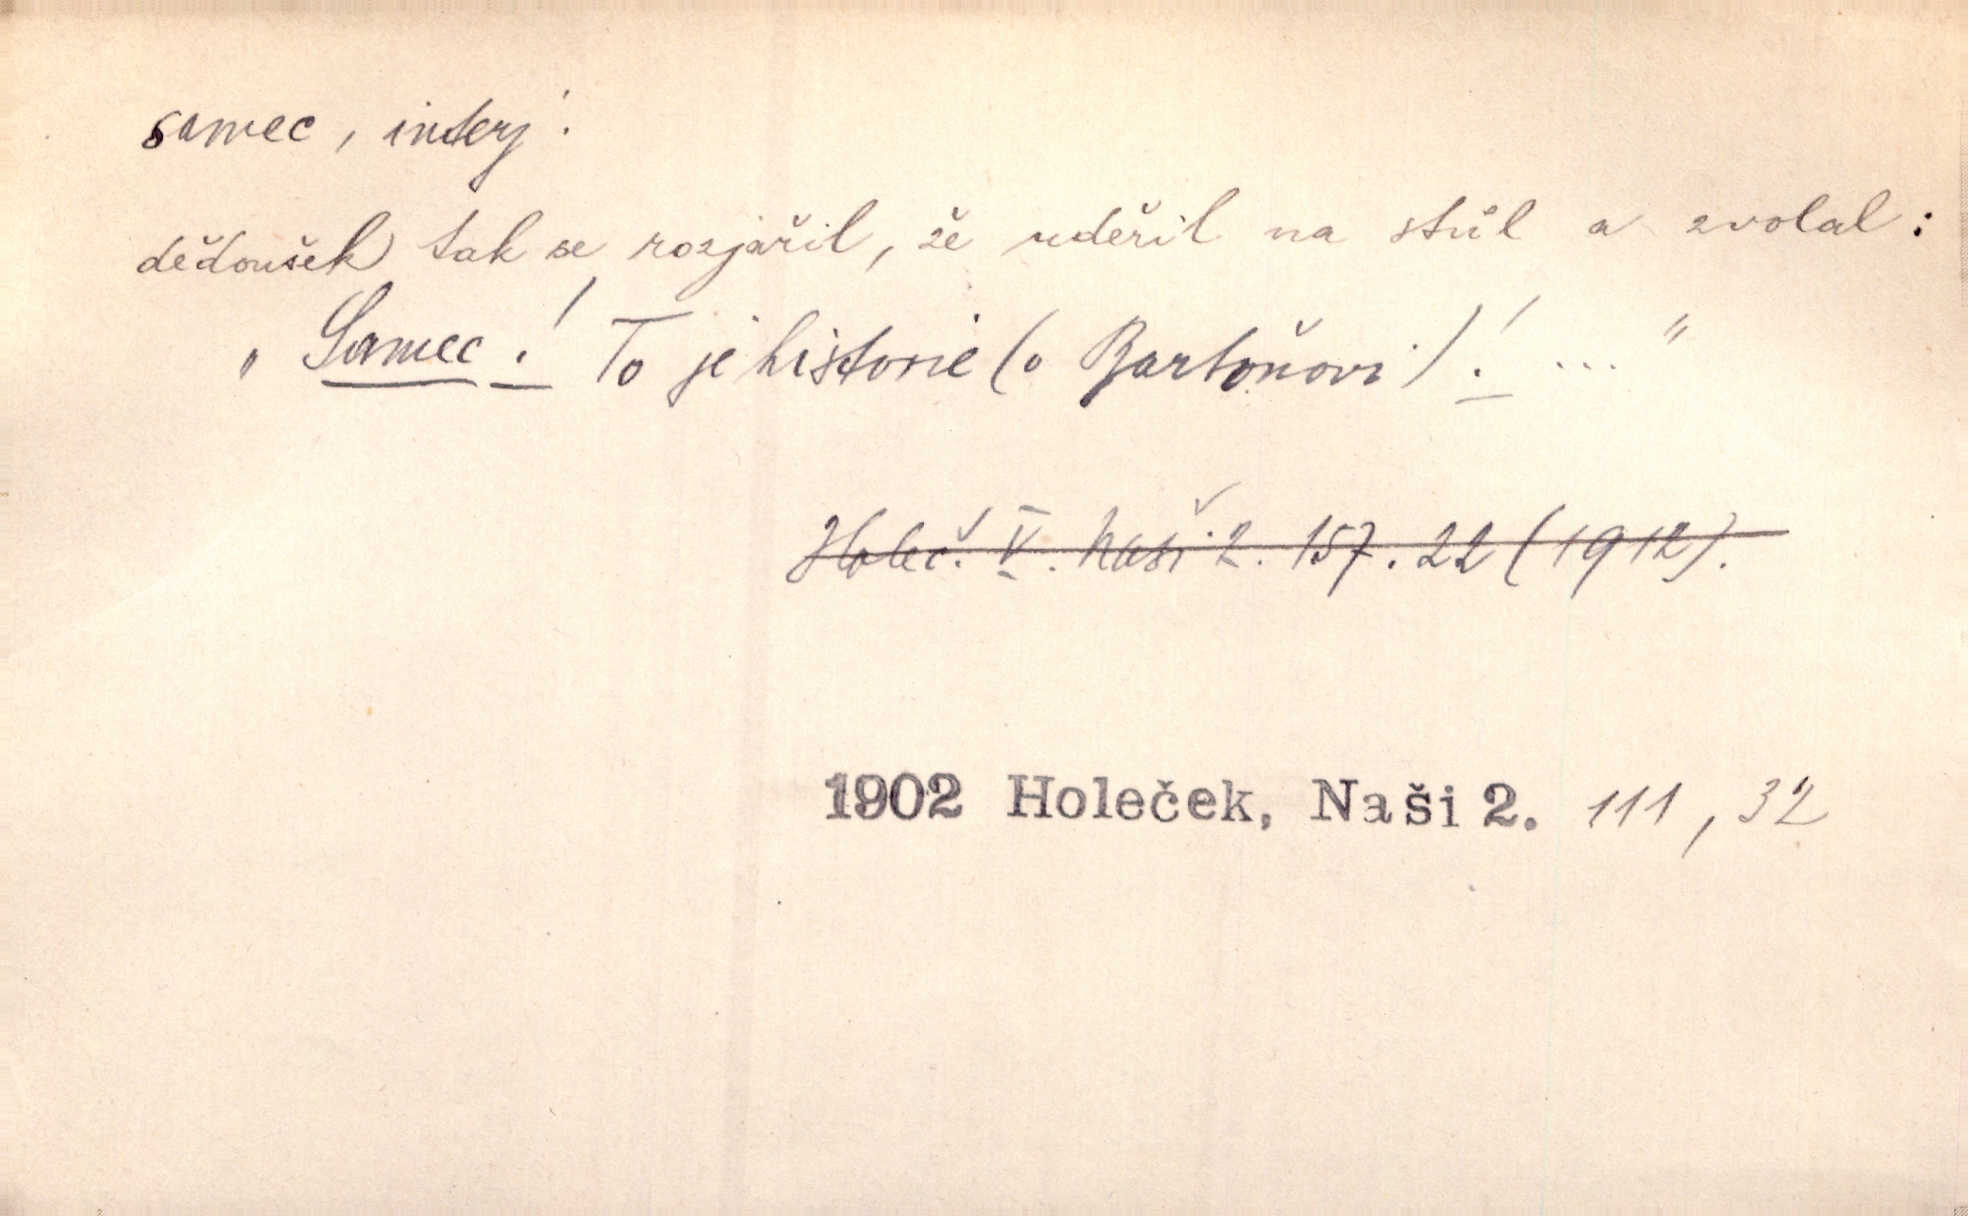 samec, interj!
dědoušek tak se rozjařil, že udeřil na stůl a zvolal:
„Samec! To je historie (o Bartoňovi)! ..."
Holeč. V. Naši 2. 157. 22 (1912).
1902 Holeček, Naši 2. 111, 32